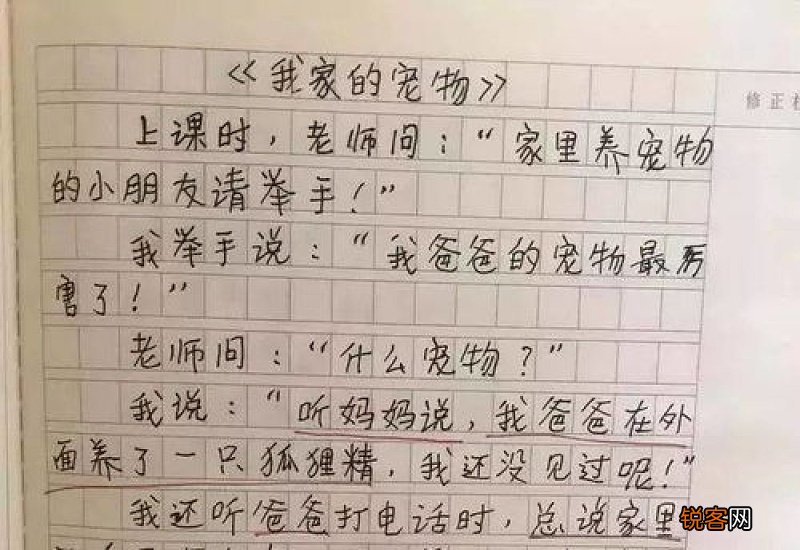 《我家的宠物》
修正栏
上课时，老师问：“家里养宠物
的小朋友请举手！”
我举手说：“我爸爸的宠物最厉
害了！”
老师问：“什么宠物？”
我说：“听妈妈说，我爸爸在外
面养了一只狐狸精，我还没见过呢！”
我还听爸爸打电话时，总说家里
锐客网